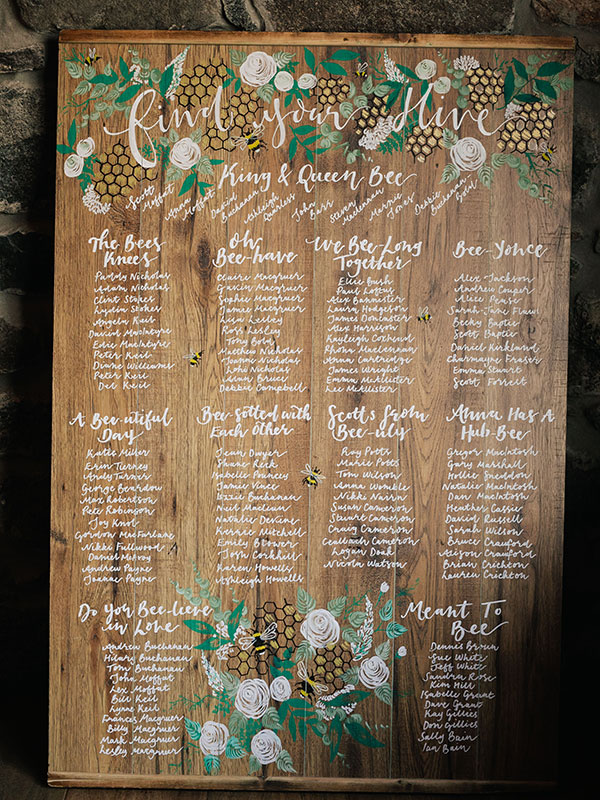 find your Hive
King & Queen Bee
Scott Moffat
Anna Moffat
David Buchanan
Ashleigh
John Barr
Steven Maclennan
Marnie Jones
Debbie Buchanan
The Bees Knees
Paddy Nicholas
Adam Nicholas
Clint Stokes
Lydia Stokes
Angela Keil
David MacIntyre
Edie MacIntyre
Peter Keil
Diane Williams
Peter Keil
Deb Keil
Oh Bee-have
Claire Macgruer
Gavin Macgruer
Sophie Macgruer
James Macgruer
Lisa Lesley
Ross Lesley
Tony Bola
Matthew Nicholas
Joanne Nicholas
Lohi Nicholas
Adam Bruce
Debbie Campbell
We Bee-Long Together
Ellie Bush
Paul Loftus
Alex Bannister
Laura Hodgeson
James Doncaster
Alex Harrison
Kayleigh Coxhead
Rhona Maclennan
Anna Cartridge
James Wright
Emma McAllister
Lee McAllister
Bee-Yonce
Alex Jackson
Andrew Couper
Alice Pease
Sarah-Jane Fluwi
Becky Baptie
Scott Baptie
Daniel Kirkland
Charmayne Fraser
Emma Stuart
Scott Forrest
A Bee-utiful Day
Katie Miller
Erin Tierney
Andy Turner
George Beardow
Max Robertson
Pete Robinson
Joy Knol
Gordon MacFarlane
Nikki Fullwood
Daniel McAvoy
Andrew Payne
Joanne Payne
Bee-sotted with Each Other
Jean Dwyer
Shane Reck
Isabelle Pouncey
Jamie Vince
Izzie Buchanan
Neil MacLean
Natalie Devine
Kerrie Mitchell
Emily Blower
Josh Corkhill
Karen Howells
Ashleigh Howells
Scots from Bee-uly
Roy Potts
Marie Potts
Tom Wilson
Anna Wardle
Nikki Nairn
Susan Cameron
Stewart Cameron
Craig Cameron
Cealbach Cameron
Logan Doak
Nicola Watson
Anna Has A Hub-Bee
Gregor MacIntosh
Gary Marshall
Hollie Sneddon
Natalie MacIntosh
Dan MacIntosh
Heather Cassie
David Russell
Sarah Wilson
Bruce Crawford
Alison Crawford
Brian Crichton
Lauren Crichton
Do You Bee-lieve in Love
Andrew Buchanan
Hilary Buchanan
Tom Buchanan
John Moffat
Lex Moffat
Bill Keil
Lynne Keil
Frances Macgruer
Billy Macgruer
Mark Macgruer
Lesley Macgruer
Meant To Bee
Dennis Brown
Sue White
Jeff White
Sandra Rose
Kim Hill
Isabelle Grant
Dave Grant
Kay Gillies
Don Gillies
Sally Bain
Ian Bain